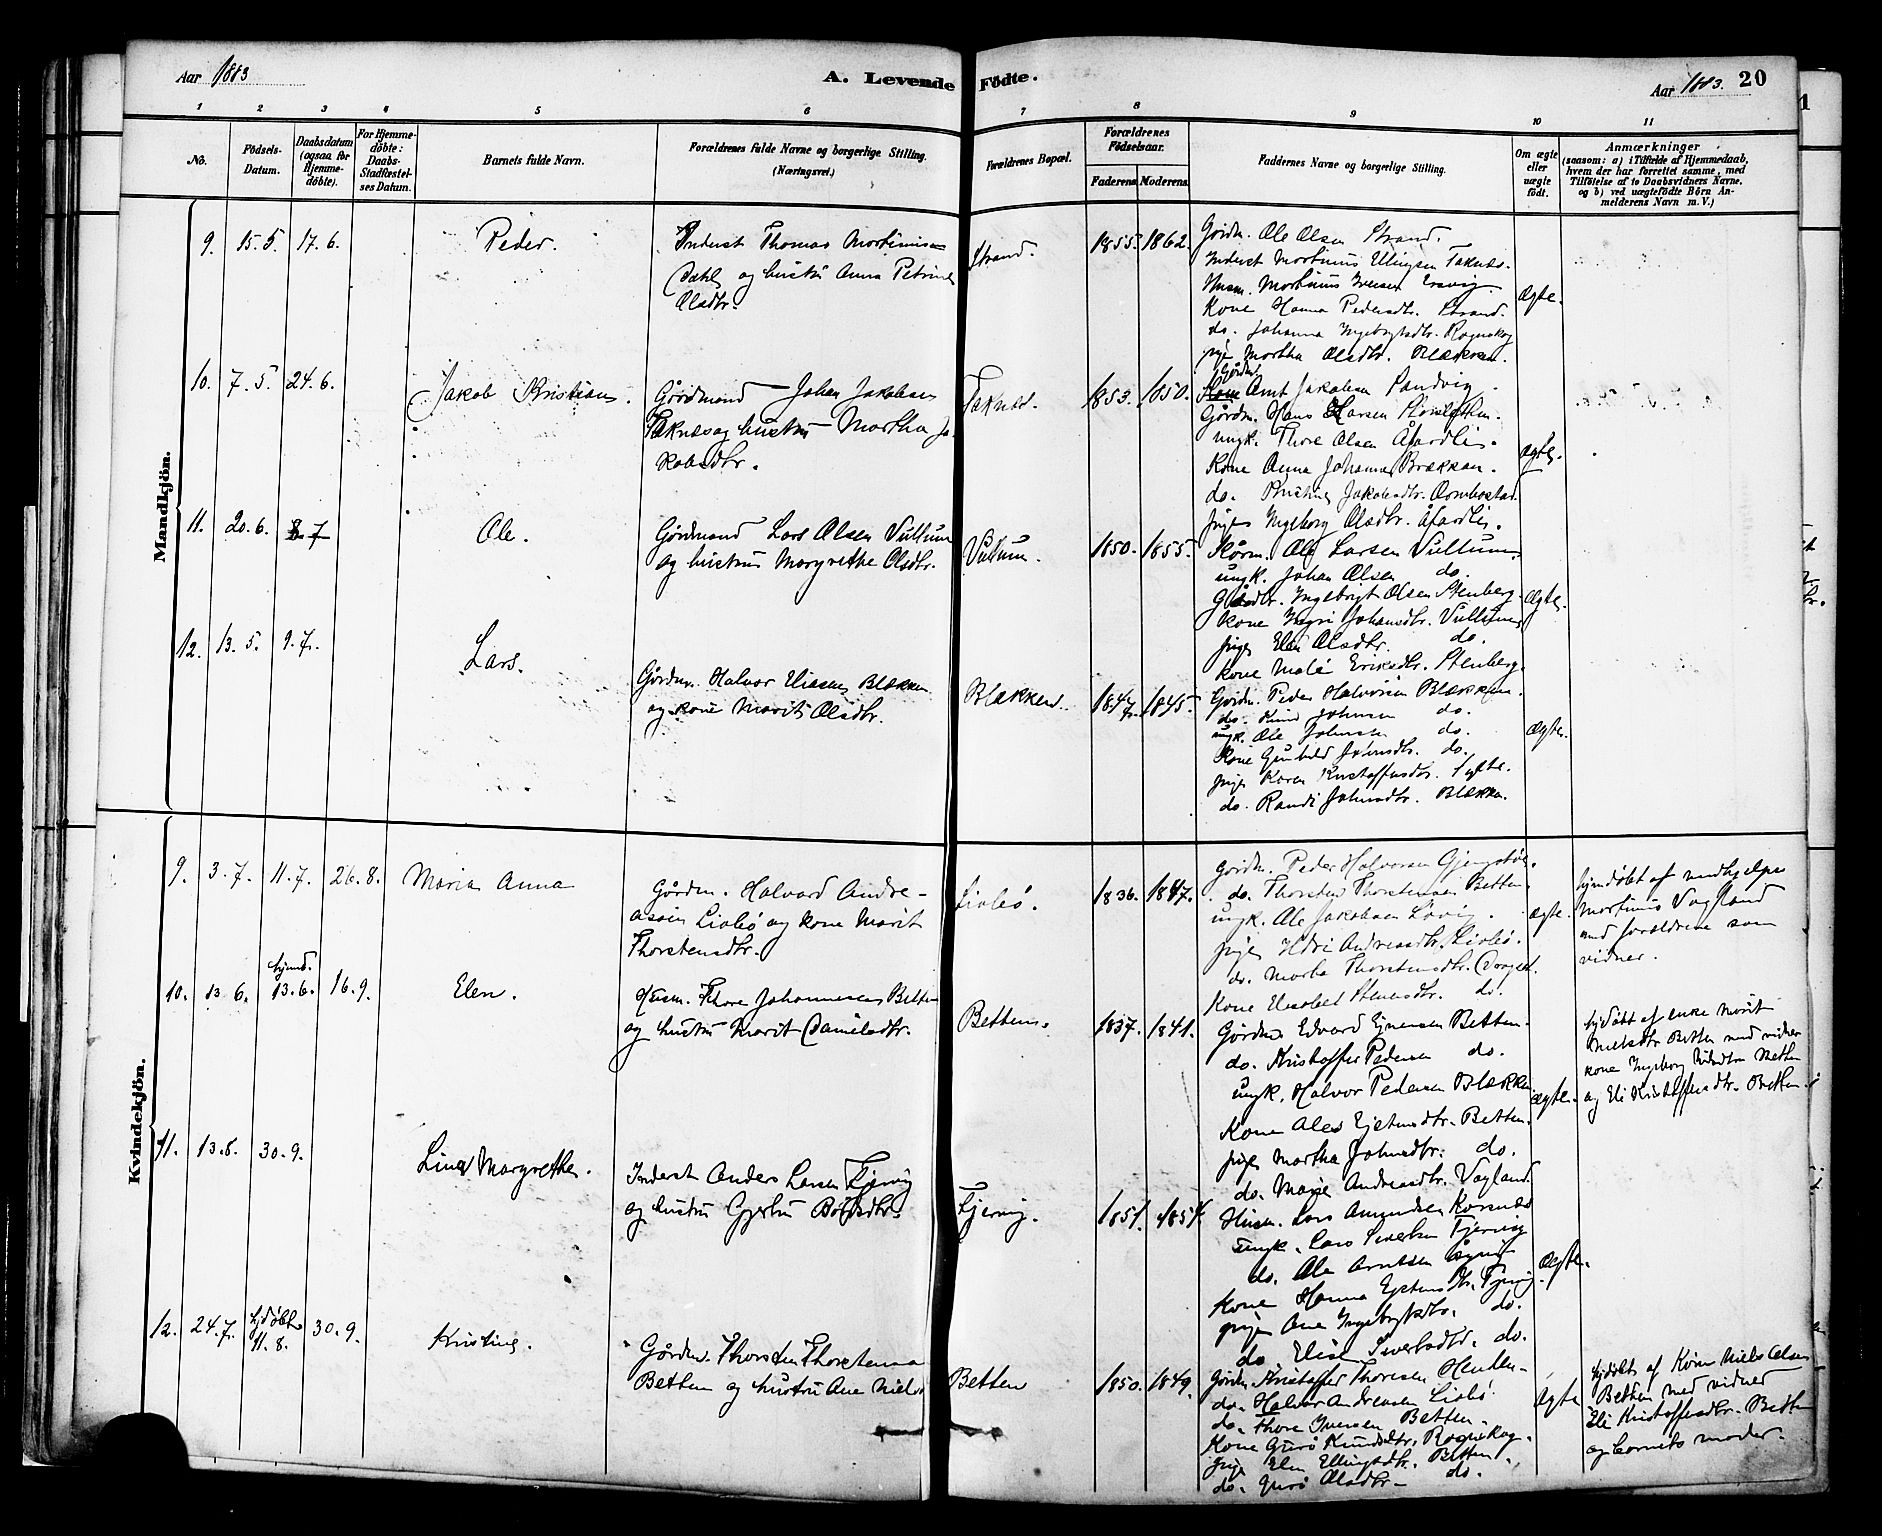 Aar 1883
A. Levende Födte.
Aar 1883. 20
1 2 3 4 5 6 7 8 9 10 11
No.
Födsels-Datum.
Daabsdatum (ogsaa for Hjemme-döbte).
For Hjemme-döbte: Daabs-Stadfæstel-ses Datum.
Barnets fulde Navn.
Forældrenes fulde Navne og borgerlige Stilling. (Næringsvei.)
Forældrenes Bopæl.
Forældrenes Födselsaar.
Faderens. Moderens.
Faddernes Navne og borgerlige Stilling.
Om ægte eller uægte födt.
Anmærkninger
(saasom: a) i Tilfælde af Hjemmedaab,
hvem der har forrettet samme, med
Tilföielse af to Daabsvidners Navne,
og b) ved uægtefödte Börn An-
melderens Navn m. V.)
Mandkjön.
9. 15. 5. 17. 6. Peder.
Inderst Thomas Mortinusen
Dahl og hustru Anna Petrine
Olsdtr.
Strand. 1855. 1862.
Gårdm. Ole Olsen Strand.
Inderst Mortinus Ellingsen Taknæs.
Husm. Mortinus Iversen
Kone Hanna Pedersdtr. Strand.
do. Johanna Ingebrigtsdtr. Rognskog
pige Martha Olsdtr. Blækken.
Ægte.
10. 7. 5. 24. 6. Jakob Kristian.
Gårdmand Johan Jakobsen
Taknæs og hustru Martha Ja-
kobsdtr.
Taknæs. 1853. 1850.
Gårdm.
Arnt Jakobsen Sandvig.
Gårdm. Hans Larsen
ungk. Thore Olsen Åfardli.
Kone Anna Johanna Brækken.
do. Kristine Jakobsdtr.
pige Ingeborg Olsdtr. Åfardli.
ægte.
11. 20. 6. 8 7 Ole.
Gårdmand Lars Olsen Vullum
og hustru Margrethe Olsdtr.
Vullum. 1850. 1855.
Kårm. Ole Larsen Vullum.
ungk. Johan Olsen do.
Ingebrigt Olsen Stenberg.
Kone Ingri Johansdtr. Vullum
pige Eli Olsdtr. do.
Kone Malé Eriksdtr. Stenberg.
ægte.
12. 13. 5. 9. 7. Lars.
Gårdm. Halvor Eliasen Blækken
og kone Marit Olsdtr.
Blækken. 1847. 1845.
Gårdm. Peder Halvorsen Blækken.
do. Johnsen do.
ungk. Ole Johnsen do.
Kone Gunhild Johnsdtr. do.
pige Karen Kristoffersdtr. Sylte.
do. Randi Johnsdtr. Blækken.
Ægte.
Kvindekjön.
9. 3. 7. 11. 7. 26. 8. Maria Anna
Gårdm. Halvard Andre-
asen Liabö og kone Marit
Thorstensdtr.
Liabö. 1836. 1847.
Gårdm. Peder Halvorsen Gjengstö.
do. Thorsten Thorstensen Betten.
ungk. Ole Jakobsen
pige Ildri Andreasdtr. Liabö.
do. Marta Thorstensdtr.
Kone Elisabet Stenersdtr. do.
ægte.
hjemdöbt af nödhjelper
Mortinus Vagland
med forældrene som
vidner.
10. 13. 6. hjemd. 13. 6. 16. 9. Elen.
Husm. Thore Johannesen Betten
og hustru Marit Danielsdtr.
Betten. 1837. 1841.
Gårdm. Edvard Ejnersen Betten.
do. Kristoffer Pedersen do.
ungk. Halvor Pedersen Blækken
Kone Ales Ejstensdtr. Betten.
pige Martha Johnsdtr. do.
do. Marie Andreasdtr. Vagland.
ægte.
hjdöbt af enke Marit
Nielsdtr. Betten med vidner
kone Ingeborg Betten
og Eli Kristoffersdtr. Betten.
11. 13. 8. 30. 9. Lina Margrethe.
Inderst Anders Larsen Fjervig
og hustru Gjertru
Fjervig. 1851. 1854.
Husm. Lars Amundsen Korsnæs
ungk. Lars Sivertsen Fjervig
do. Ole Arntsen
Kone Hanna Ejstensdtr. Fjervig
pige Ane Ingebrigtsdtr. do.
do. Elise Sivertsdtr. do.
Ægte.
12. 24. 7. hjdöbt 11. 8. 30. 9. Kristine.
Gårdm. Thorsten Thorstensen
Betten og hustru Ane Nielsd
Betten 1850. 1849.
Gårdm. Kristoffer Thoresen Henden.
do. Halvor Andreasen Liabö.
do. Thore Iversen Betten.
Kone Guro Knudsdtr. Rognskog.
pige Elen Ellingsdtr. Betten.
do. Guro Olsdtr. do.
Ægte
hjdöbt af Kårm. Niels Olsen
Betten med vidner
Eli Kristoffersdtr. Betten
og barnets moder.